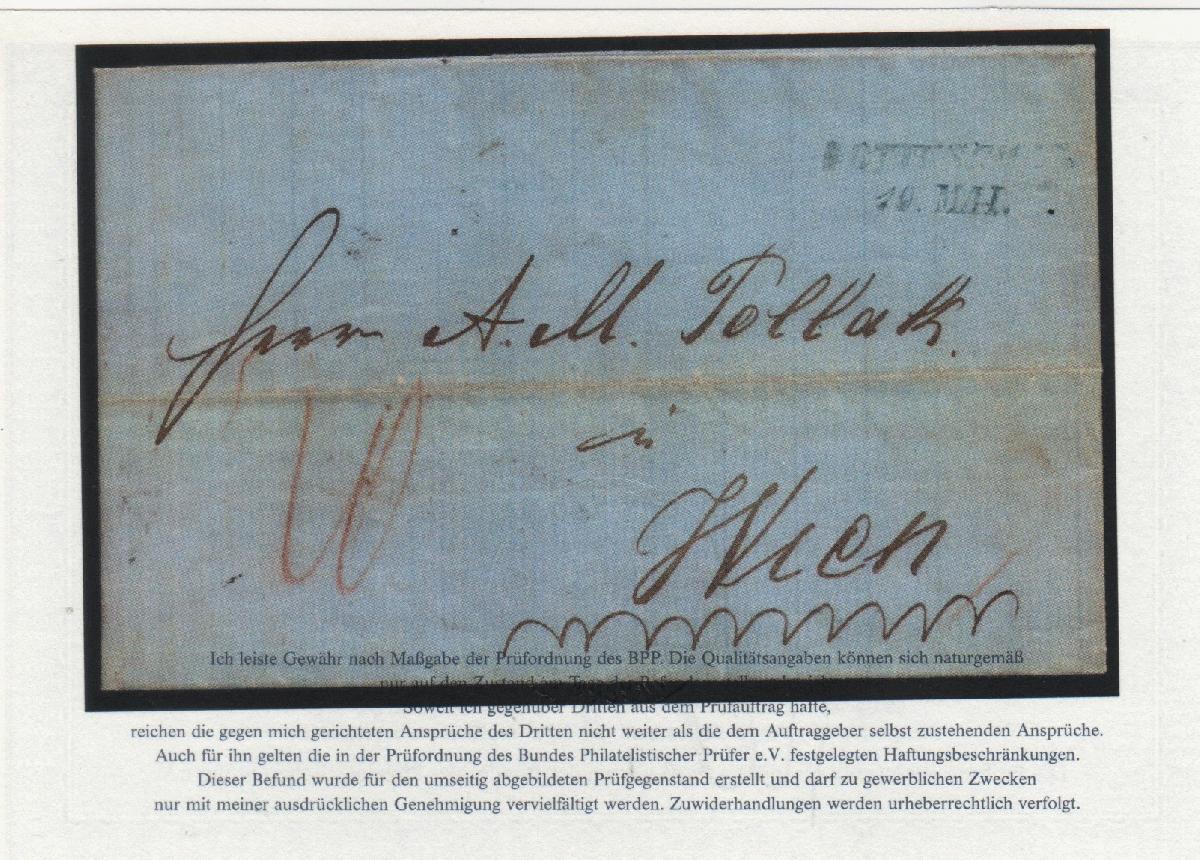 19. MAI.
Herr A. M. Pollak.
in
Wien
10
Ich leiste Gewähr nach Maßgabe der Prüfordnung des BPP. Die Qualitätsangaben können sich naturgemäß
nur auf den Zustand am Tage der
Soweit ich gegenüber Dritten aus dem Prüfauftrag hafte,
reichen die gegen mich gerichteten Ansprüche des Dritten nicht weiter als die dem Auftraggeber selbst zustehenden Ansprüche.
Auch für ihn gelten die in der Prüfordnung des Bundes Philatelistischer Prüfer e.V. festgelegten Haftungsbeschränkungen.
Dieser Befund wurde für den umseitig abgebildeten Prüfgegenstand erstellt und darf zu gewerblichen Zwecken
nur mit meiner ausdrücklichen Genehmigung vervielfältigt werden. Zuwiderhandlungen werden urheberrechtlich verfolgt.